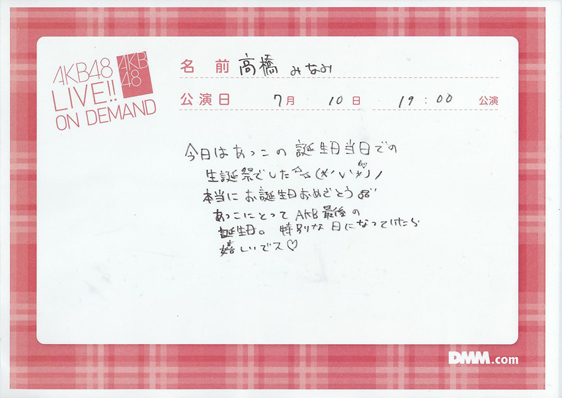 AKB48
LIVE!!
ON DEMAND
AKB
48
名 前 高橋 みなみ
公演日 7月 10日 19:00 公演
今日はあっこの 誕生日当日での
生誕祭でした
本当にお誕生日おめでとう
あっこにとって AKB最後の
誕生日。特別な日になってけたら
嬉しいでス♡
DMM.com